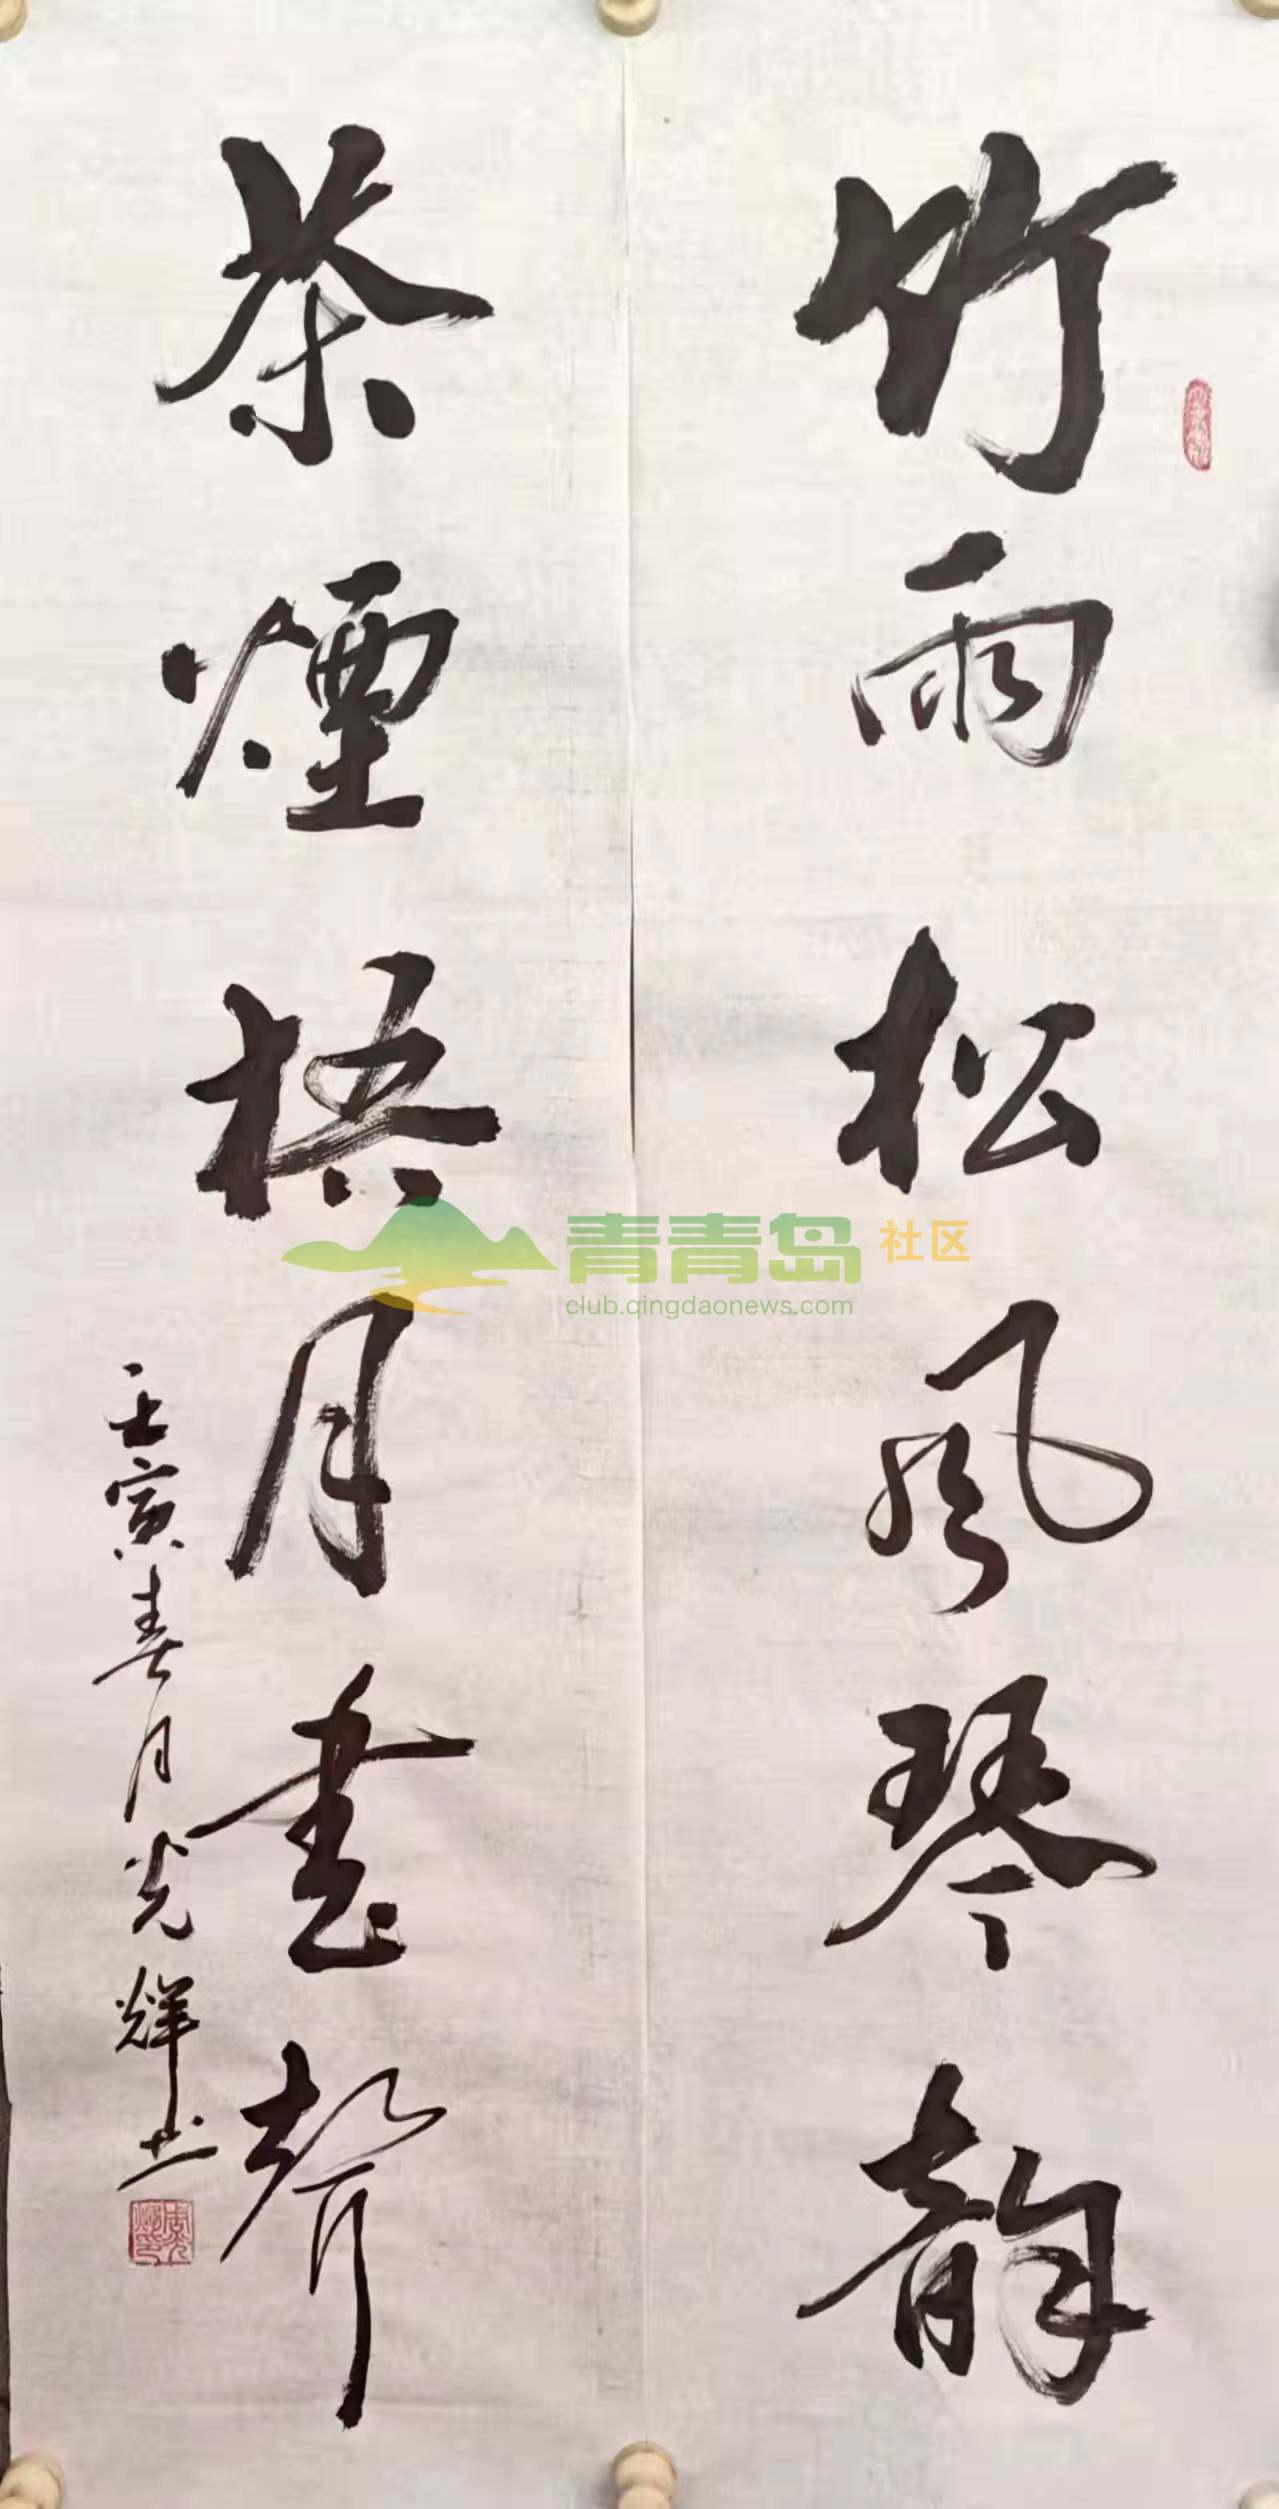 竹雨松風琴韵
茶煙梧月書聲
壬寅春月光輝书
青青岛社区
club.qingdaonews.com